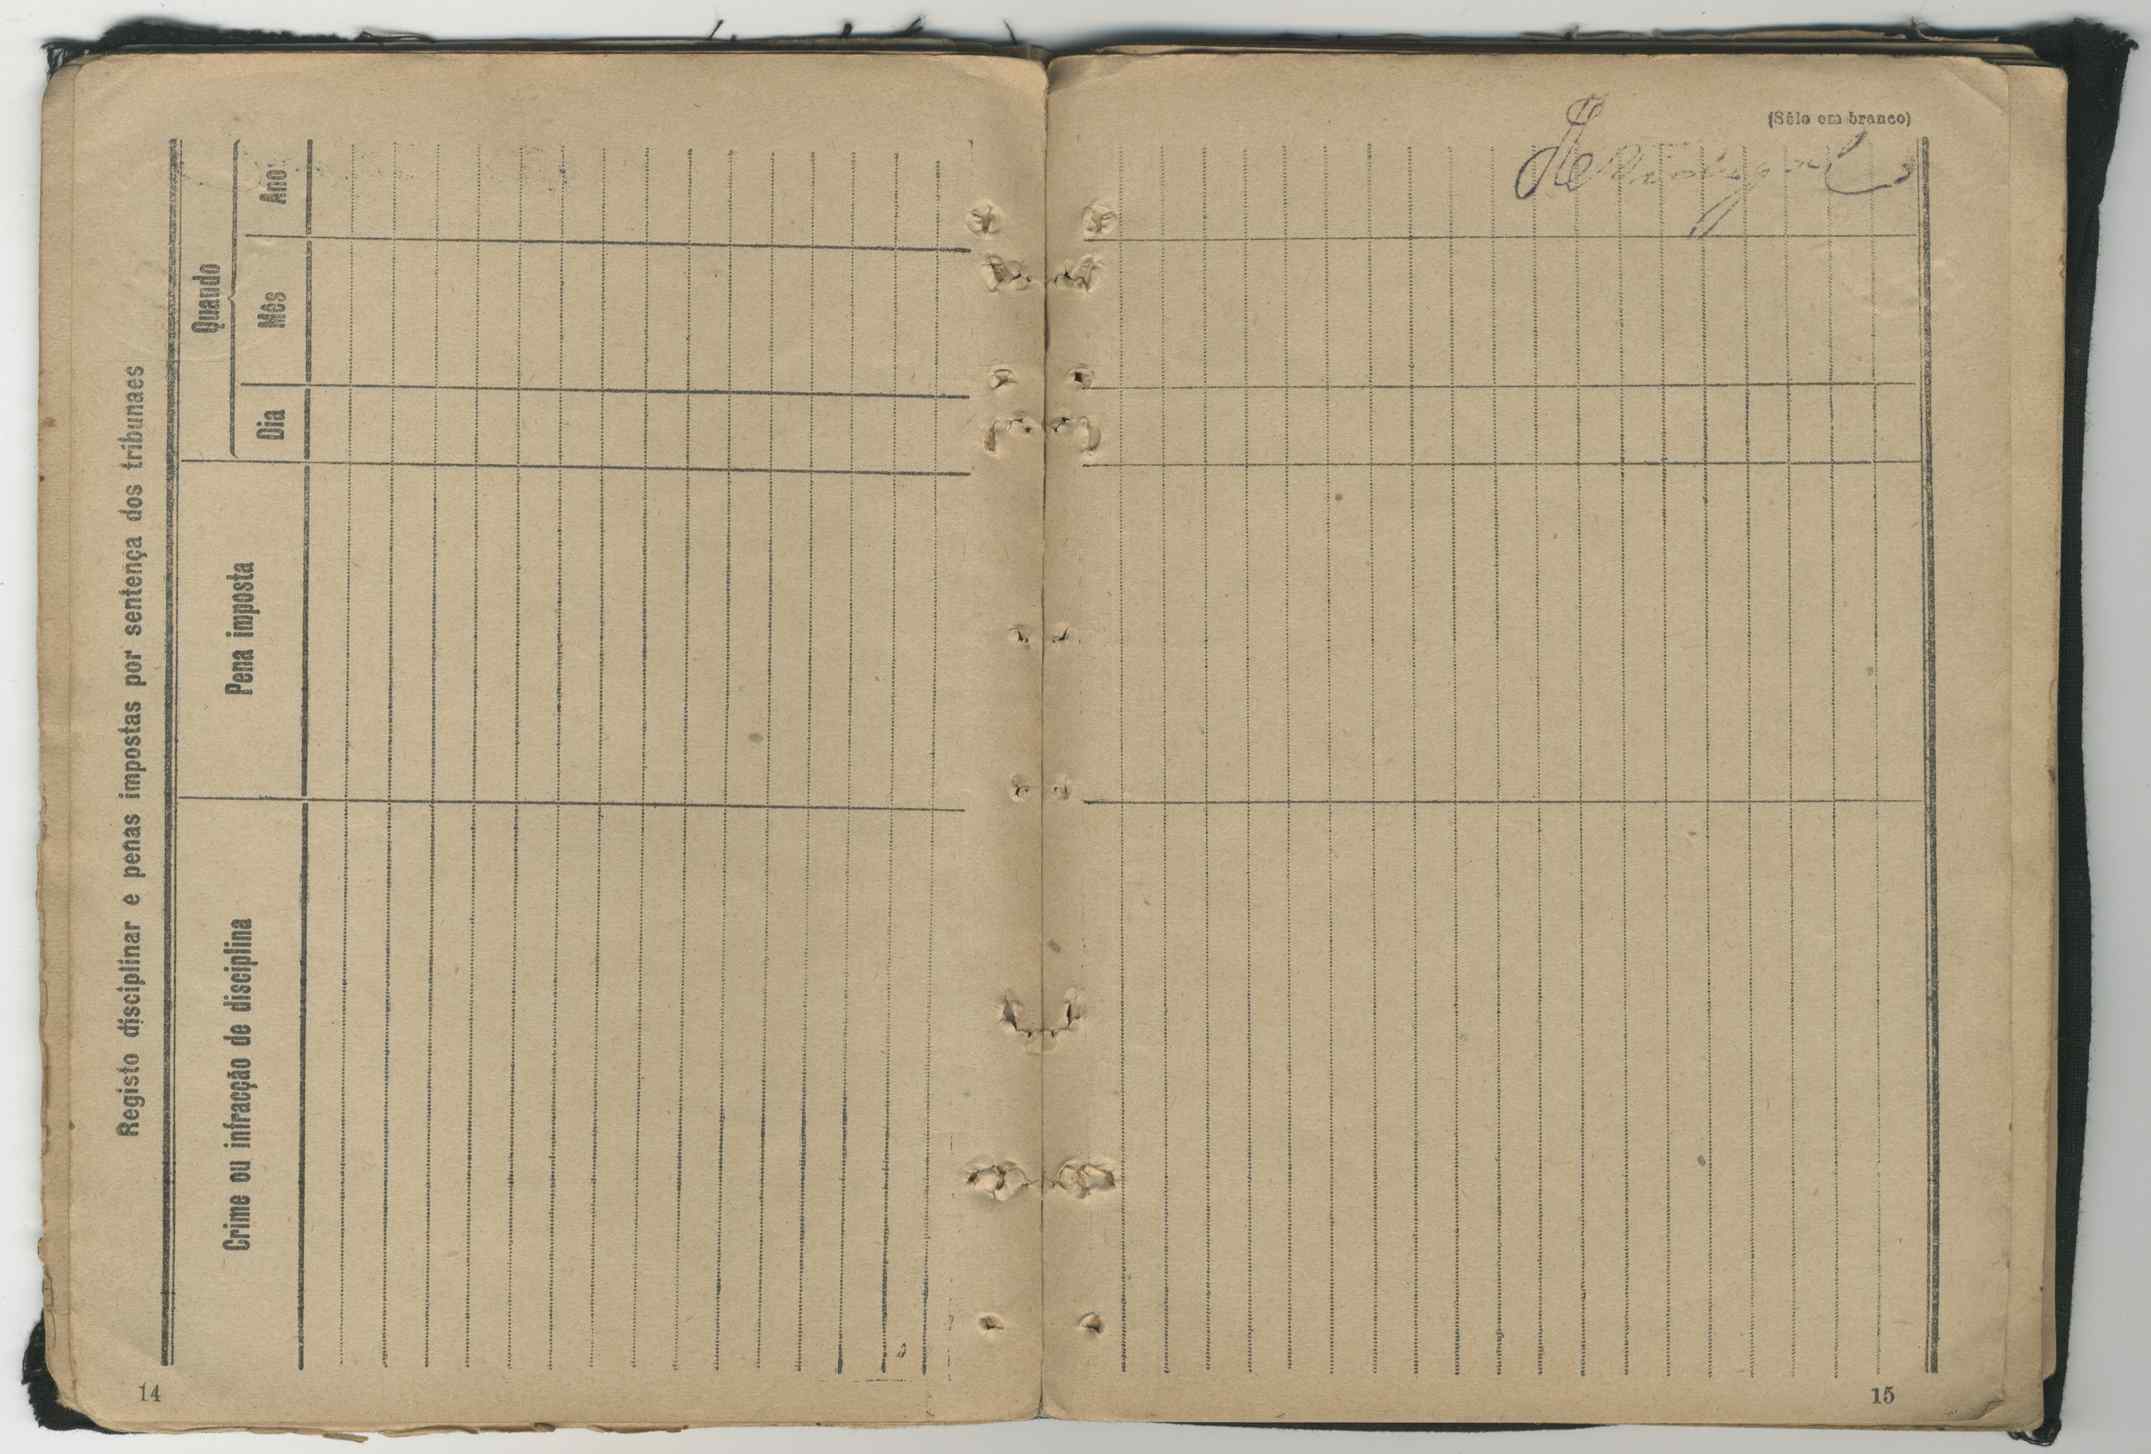 Registo disciplinar e penas impostas por sentença dos tribunaes
Crime ou infracção de disciplina
Pena imposta
Quando
Dia
Mês
Ano
14
(Sêlo em branco)
15